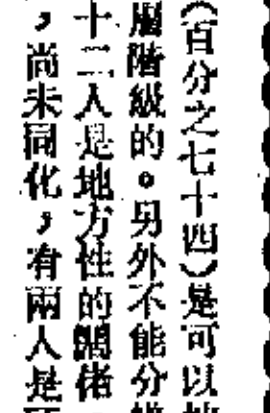 (百分之七十四)是可以
層階級的。另外不能分
十二人是地方性的閥佬
,尚未同化,有兩人是